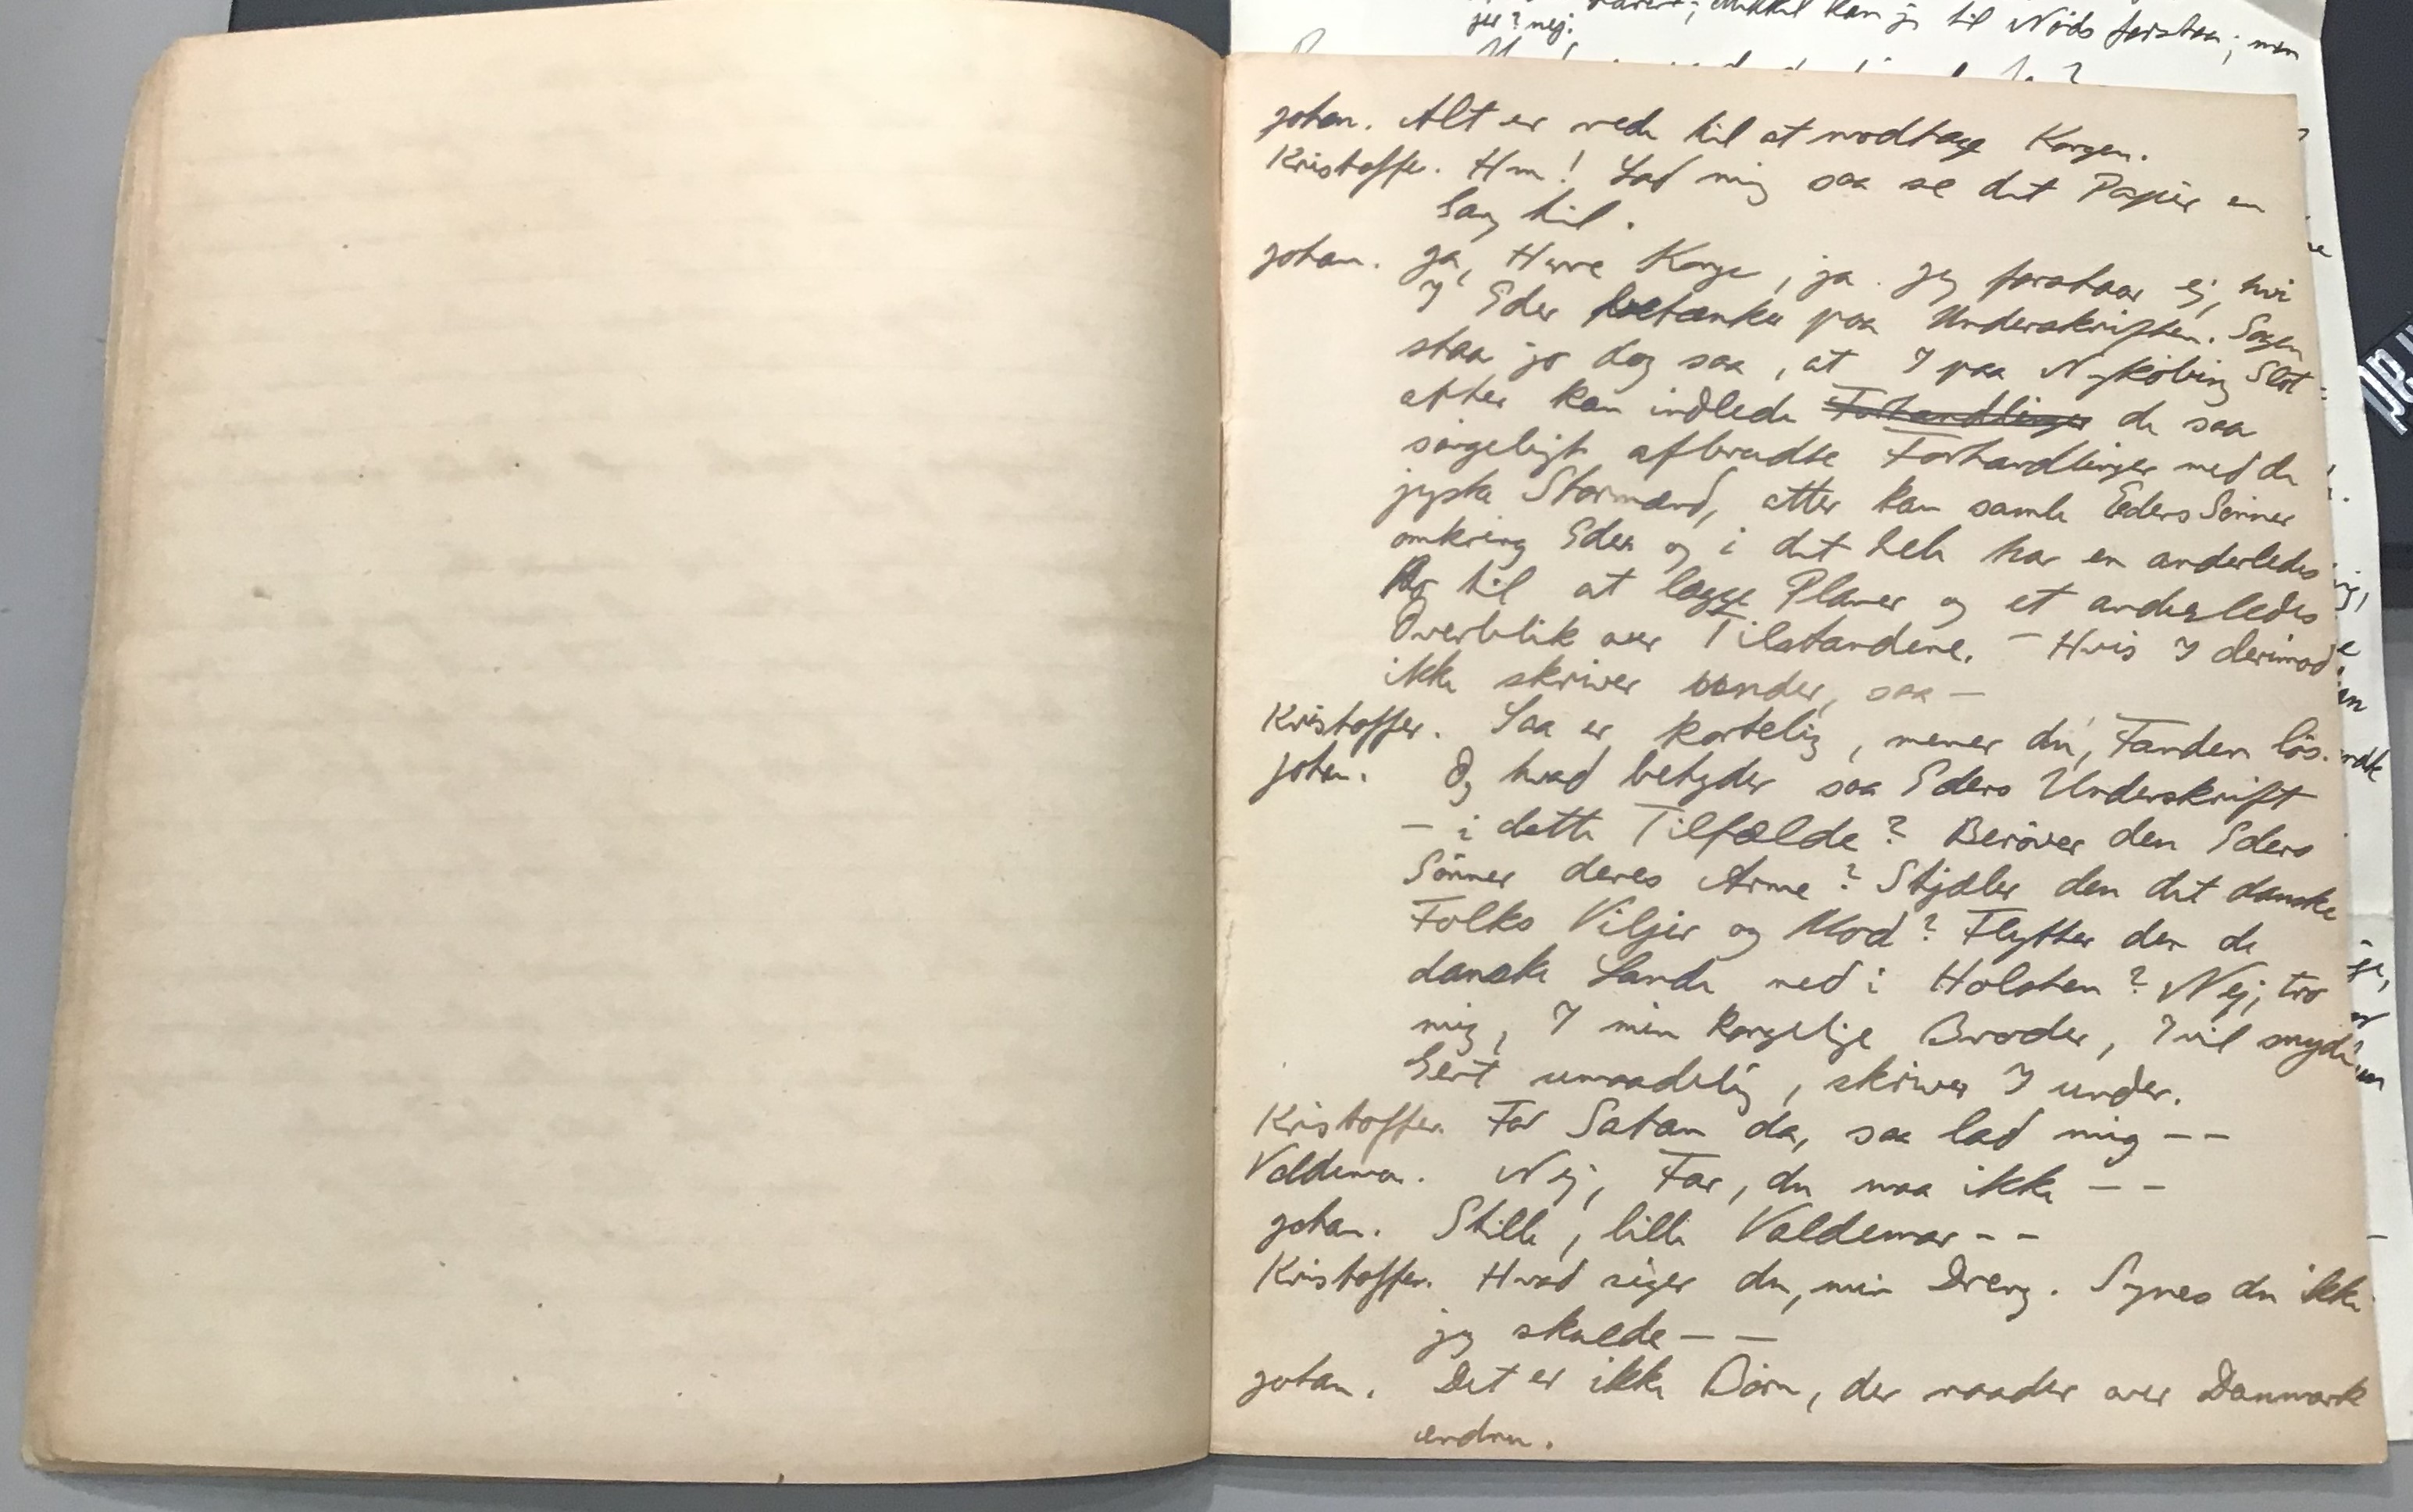 til Nöds forstaa; men
jer? nej.
Johan. Alt er rede til at modtage Kongen.
Kristoffer. Hm! Lad mig saa se det Papir en
Gang til.
Johan. Ja, Herre Konge, ja. Jeg forstaar ej, hvi
I Eder betænker paa Underskriften. Sagen
staar jo dog saa, at I paa Nyköbing Slot
atter kan indlede Forhandlinger de saa
sörgeligt afbrudte Forhandlinger med de
jyske Stormænd, atter kan samle Eders Sönner
omkring Eder og i det hele har en anderledes
Ro til at lægge Planer og et anderledes
Overblik over Tilstandene. – Hvis I derimod
ikke skriver under, saa –
Kristoffer. Saa er kortelig, mener du, Fanden lös.
Johan. Og hvad betyder saa Eders Underskrift
– i dette Tilfælde? Beröver den Eders
Sönner deres Arme? Stjæler den det danske
Folks Viljer og Mod? Flytter den de
danske Lande ned i Holsten? Nej, tro
mig, I min kongelige Broder, I vil snyde
Gert umaadelig, skriver I under.
Kristoffer. For Satan da, saa lad mig – –
Valdemar. Nej, Far, du maa ikke – –
Johan. Stille, lille Valdemar – –
Kristoffer. Hvad siger du, min Dreng. Synes du ikke
jeg skulde – –
Johan. Det er ikke Börn, der raader over Danmark
endnu.